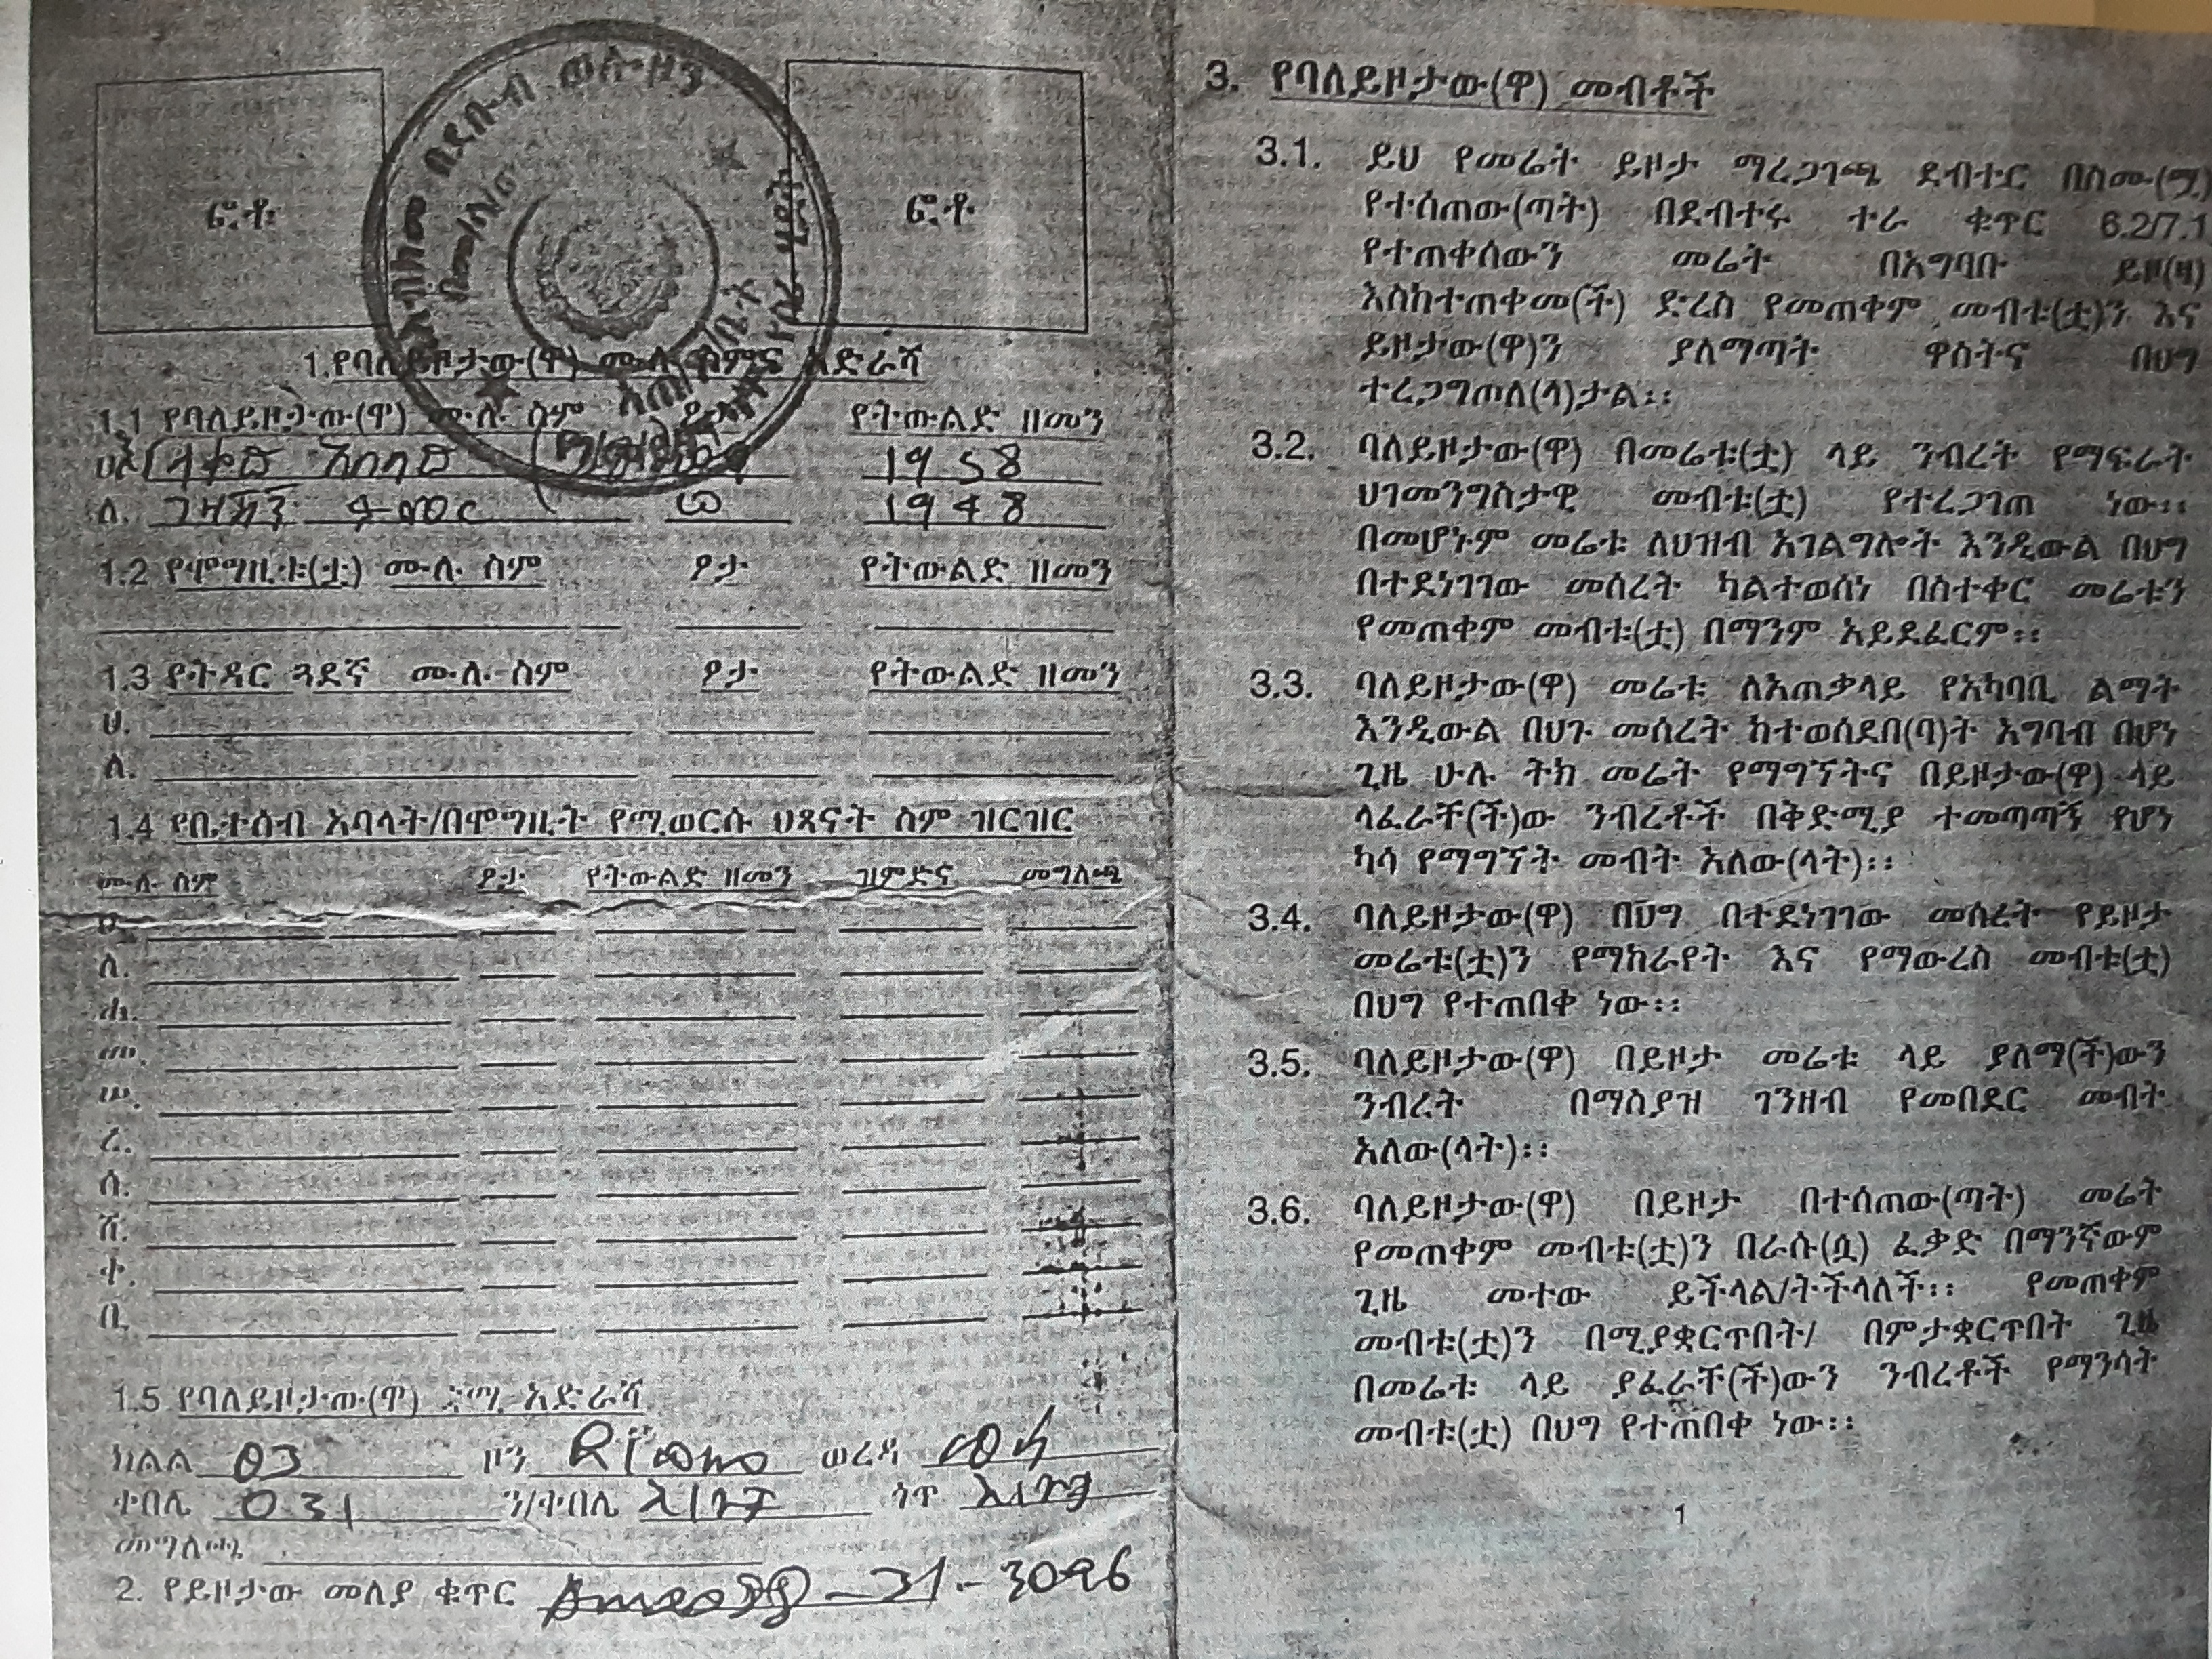 ፎቶ
ፎቶ
1.የባለይዞታው(ዋ) ሙሉ ስምና አድራሻ
1.1 የባለይዞታው(ዋ) ሙሉ ስም ፆታ የትውልድ ዘመን
1958
ለ. 1948
1.2 የሞግዚቱ(ቷ) ሙሉ ስም ፆታ የትውልድ ዘመን
1.3 የትዳር ጓደኛ ሙሉ ስም ፆታ የትውልድ ዘመን
ሀ.
ለ.
1.4 የቤተሰብ አባላት/በሞግዚት የሚወርሱ ህጻናት ስም ዝርዝር
ሙሉ ስም ፆታ የትውልድ ዘመን ዝምድና መግለጫ
ሀ.
ለ.
ሐ.
መ.
ሠ.
ረ.
ሰ.
ሸ.
ቀ.
በ.
1.5 የባለይዞታው(ዋ) ቋሚ አድራሻ
ክልል 03 ዞን ወረዳ
ቀበሌ 031 ን/ቀበሌ ጎጥ
መግለጫ
2. የይዞታው መለያ ቁጥር
3. የባለይዞታው(ዋ) መብቶች
3.1. ይህ የመሬት ይዞታ ማረጋገጫ ደብተር በስሙ(ሟ)
የተሰጠው(ጣት) በደብተሩ ተራ ቁጥር 6.2/7.1
የተጠቀሰውን መሬት በአግባቡ ይዞ(ዛ)
እስከተጠቀመ(ች) ድረስ የመጠቀም መብቱ(ቷ)ን እና
ይዞታው(ዋ)ን ያለማጣት ዋስትና በህግ
ተረጋግጦለ(ላ)ታል፡፡
3.2. ባለይዞታው(ዋ) በመሬቱ(ቷ) ላይ ንብረት የማፍራት
ህገመንግስታዊ መብቱ(ቷ) የተረጋገጠ ነው፡፡
በመሆኑም መሬቱ ለህዝብ አገልግሎት እንዲውል በህግ
በተደነገገው መሰረት ካልተወሰነ በስተቀር መሬቱን
የመጠቀም መብቱ(ቷ) በማንም አይደፈርም፡፡
3.3. ባለይዞታው(ዋ) መሬቱ ለአጠቃላይ የአካባቢ ልማት
እንዲውል በህጉ መሰረት ከተወሰደበ(ባ)ት አግባብ በሆነ
ጊዜ ሁሉ ትክ መሬት የማግኘትና በይዞታው(ዋ) ላይ
ላፈራቸ(ች)ው ንብረቶች በቅድሚያ ተመጣጣኝ የሆነ
ካሳ የማግኘት መብት አለው(ላት)፡፡
3.4. ባለይዞታው(ዋ) በህግ በተደነገገው መሰረት የይዞታ
መሬቱ(ቷ)ን የማከራየት እና የማውረስ መብቱ(ቷ)
በህግ የተጠበቀ ነው፡፡
3.5. ባለይዞታው(ዋ) በይዞታ መሬቱ ላይ ያለማ(ች)ውን
ንብረት በማስያዝ ገንዘብ የመበደር መብት
አለው(ላት)፡፡
3.6. ባለይዞታው(ዋ) በይዞታ በተሰጠው(ጣት) መሬት
የመጠቀም መብቱ(ቷ)ን በራሱ(ሷ) ፈቃድ በማንኛውም
ጊዜ መተው ይችላል/ትችላለች፡፡ የመጠቀም
መብቱ(ቷ)ን በሚያቋርጥበት/ በምታቋርጥበት ጊዜ
በመሬቱ ላይ ያፈራቸ(ች)ውን ንብረቶች የማንሳት
መብቱ(ቷ) በህግ የተጠበቀ ነው፡፡
1